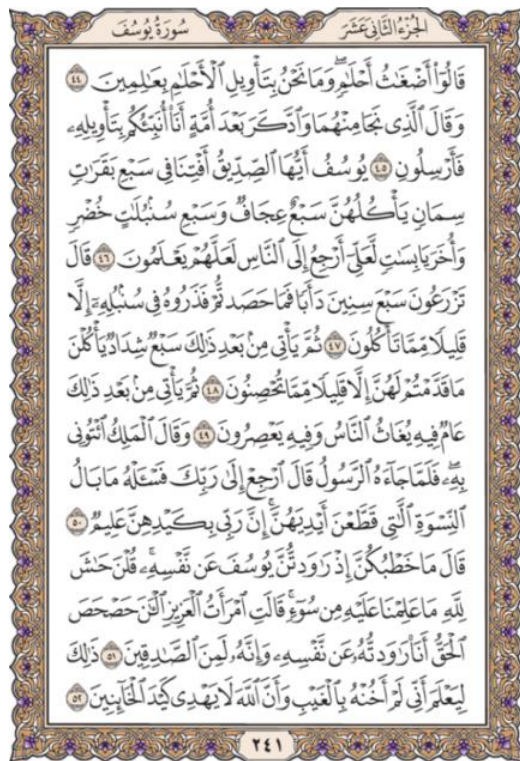 الجزء الثاني عشر
سورة يوسف
قَالُوٓا۟ أَضْغَٰثُ أَحْلَٰمٍۢ ۖ وَمَا نَحْنُ بِتَأْوِيلِ ٱلْأَحْلَٰمِ بِعَٰلِمِينَ ٤٤
وَقَالَ ٱلَّذِى نَجَا مِنْهُمَا وَٱدَّكَرَ بَعْدَ أُمَّةٍ أَنَا۠ أُنَبِّئُكُم بِتَأْوِيلِهِۦ
فَأَرْسِلُونِ ٤٥ يُوسُفُ أَيُّهَا ٱلصِّدِّيقُ أَفْتِنَا فِى سَبْعِ بَقَرَٰتٍۢ
سِمَانٍۢ يَأْكُلُهُنَّ سَبْعٌ عِجَافٌۭ وَسَبْعِ سُنۢبُلَٰتٍ خُضْرٍۢ
وَأُخَرَ يَابِسَٰتٍۢ لَّعَلِّىٓ أَرْجِعُ إِلَى ٱلنَّاسِ لَعَلَّهُمْ يَعْلَمُونَ ٤٦ قَالَ
تَزْرَعُونَ سَبْعَ سِنِينَ دَأَبًۭا فَمَا حَصَدتُّمْ فَذَرُوهُ فِى سُنۢبُلِهِۦٓ إِلَّا
قَلِيلًۭا مِّمَّا تَأْكُلُونَ ٤٧ ثُمَّ يَأْتِى مِنۢ بَعْدِ ذَٰلِكَ سَبْعٌۭ شِدَادٌۭ يَأْكُلْنَ
مَا قَدَّمْتُمْ لَهُنَّ إِلَّا قَلِيلًۭا مِّمَّا تُحْصِنُونَ ٤٨ ثُمَّ يَأْتِى مِنۢ بَعْدِ ذَٰلِكَ
عَامٌۭ فِيهِ يُغَاثُ ٱلنَّاسُ وَفِيهِ يَعْصِرُونَ ٤٩ وَقَالَ ٱلْمَلِكُ ٱئْتُونِى
بِهِۦ ۖ فَلَمَّا جَآءَهُ ٱلرَّسُولُ قَالَ ٱرْجِعْ إِلَىٰ رَبِّكَ فَسْـَٔلْهُ مَا بَالُ
ٱلنِّسْوَةِ ٱلَّٰتِى قَطَّعْنَ أَيْدِيَهُنَّ ۚ إِنَّ رَبِّى بِكَيْدِهِنَّ عَلِيمٌۭ ٥٠
قَالَ مَا خَطْبُكُنَّ إِذْ رَٰوَدتُّنَّ يُوسُفَ عَن نَّفْسِهِۦ ۚ قُلْنَ حَٰشَ
لِلَّهِ مَا عَلِمْنَا عَلَيْهِ مِن سُوٓءٍۢ ۚ قَالَتِ ٱمْرَأَتُ ٱلْعَزِيزِ ٱلْـَٰٔنَ حَصْحَصَ
ٱلْحَقُّ أَنَا۠ رَٰوَدتُّهُۥ عَن نَّفْسِهِۦ وَإِنَّهُۥ لَمِنَ ٱلصَّٰدِقِينَ ٥١ ذَٰلِكَ
لِيَعْلَمَ أَنِّى لَمْ أَخُنْهُ بِٱلْغَيْبِ وَأَنَّ ٱللَّهَ لَا يَهْدِى كَيْدَ ٱلْخَآئِنِينَ ٥٢
٢٤١